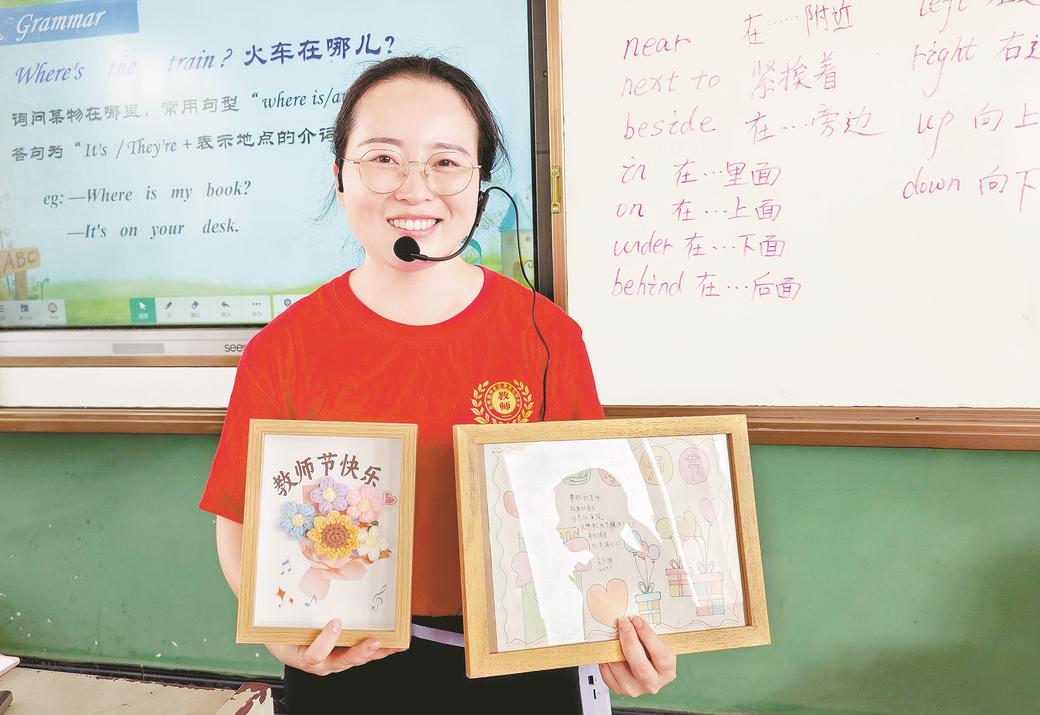 Grammar
Where's the train? 火车在哪儿?
询问某物在哪里，常用句型 “where is/ar
答句为 “It's /They're + 表示地点的介词
eg: —Where is my book?
—It's on your desk.
ABC
see
near 在……附近
next to 紧挨着
beside 在…旁边
in 在…里面
on 在…上面
under 在…下面
behind 在…后面
left
right 右边
up 向上
down 向下
教师
教师节快乐
师节